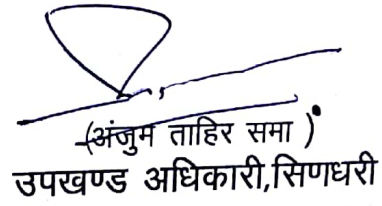 (अंजुम ताहिर समा )
उपखण्ड अधिकारी,सिणधरी